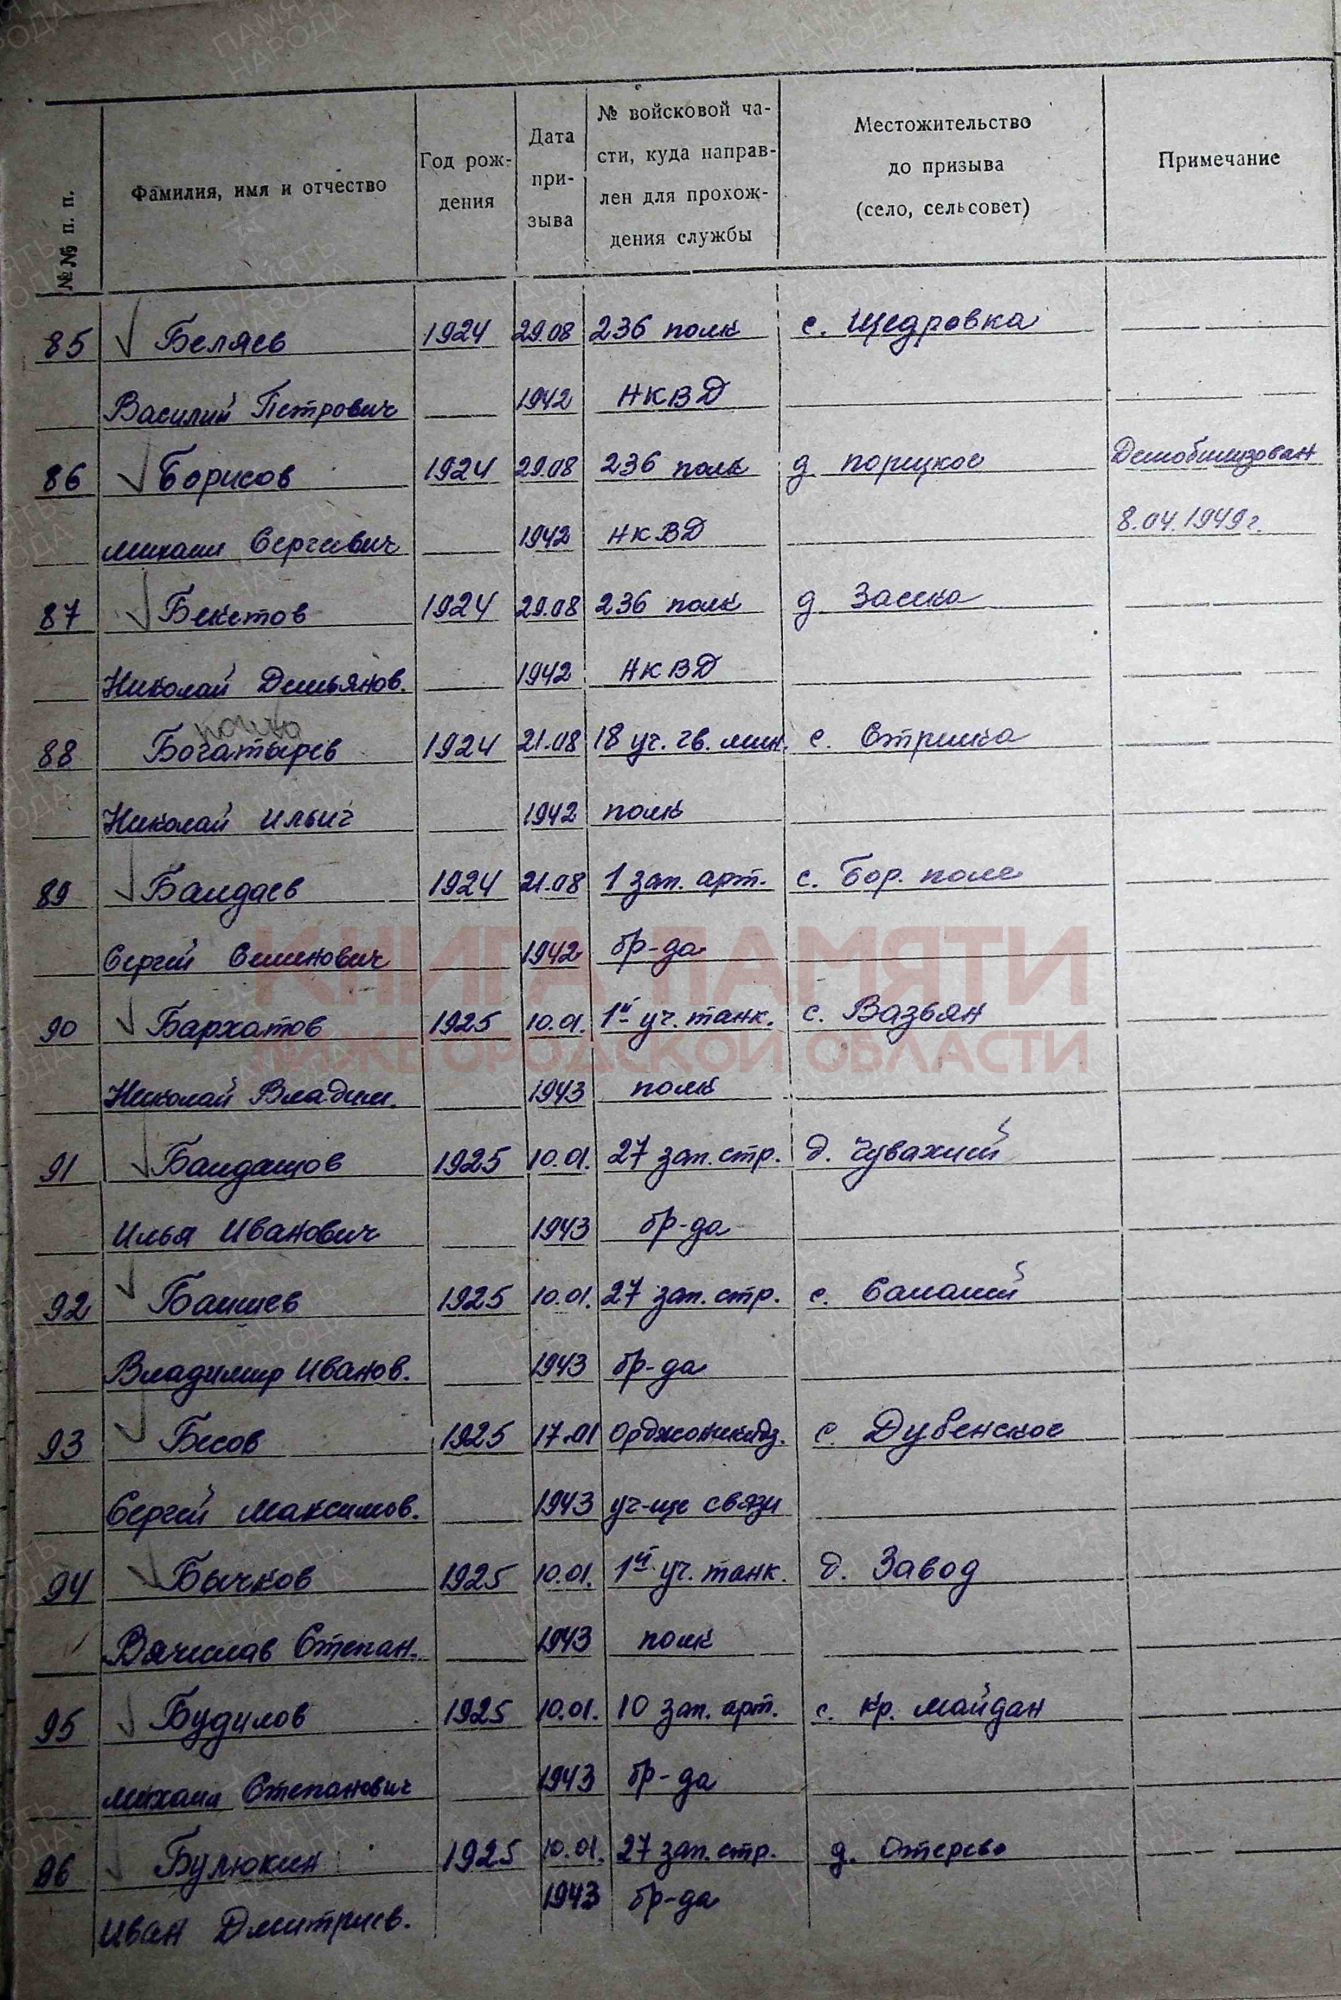 №№ п. п.
Фамилия, имя и отчество
Год рождения
Дата призыва
№ войсковой части, куда направлен для прохождения службы
Местожительство до призыва (село, сельсовет)
Примечание
85 Беляев 1924 29.08 236 полк с. Щедровка
Василий Петрович 1942 НКВД
86 Борисов 1924 29.08 236 полк д Порецкое Демобилизован
Михаил Сергеевич 1942 НКВД 8.04.1949г.
87 Бекетов 1924 29.08 236 полк д Засека
Николай Демьянов. 1942 НКВД
88 Богатырев 1924 21.08 18 уч. гв. мин. с. Стрелка
Николай Ильич 1942 полк
89 Байдаев 1924 21.08 1 зап. арт. с. Бор. поле
Сергей Семенович 1942 бр-да
КНИГА ПАМЯТИ
90 Бархатов 1925 10.01. 1й уч. танк. с. Вазьян
НИЖЕГОРОДСКОЙ ОБЛАСТИ
Николай Владим. 1943 полк
91 Байдашов 1925 10.01. 27 зап. стр. д. Чуважлей
Илья Иванович 1943 бр-да
92 1925 10.01. 27 зап. стр. с.
Владимир Иванов. 1943 бр-да
93 Бесов 1925 17.01 Орджоникидз. с. Дубенское
Сергей Максимов. 1943 уч-ще связи
94 Бычков 1925 10.01. 1й уч. танк. д. Завод
Вячеслав Степан. 1943 полк
95 Будилов 1925 10.01. 10 зап. арт. с. Кр. Майдан
Михаил Степанович 1943 бр-да
96 Булюкин 1925 10.01. 27 зап. стр. д. Отерево
Иван Дмитриев. 1943 бр-да